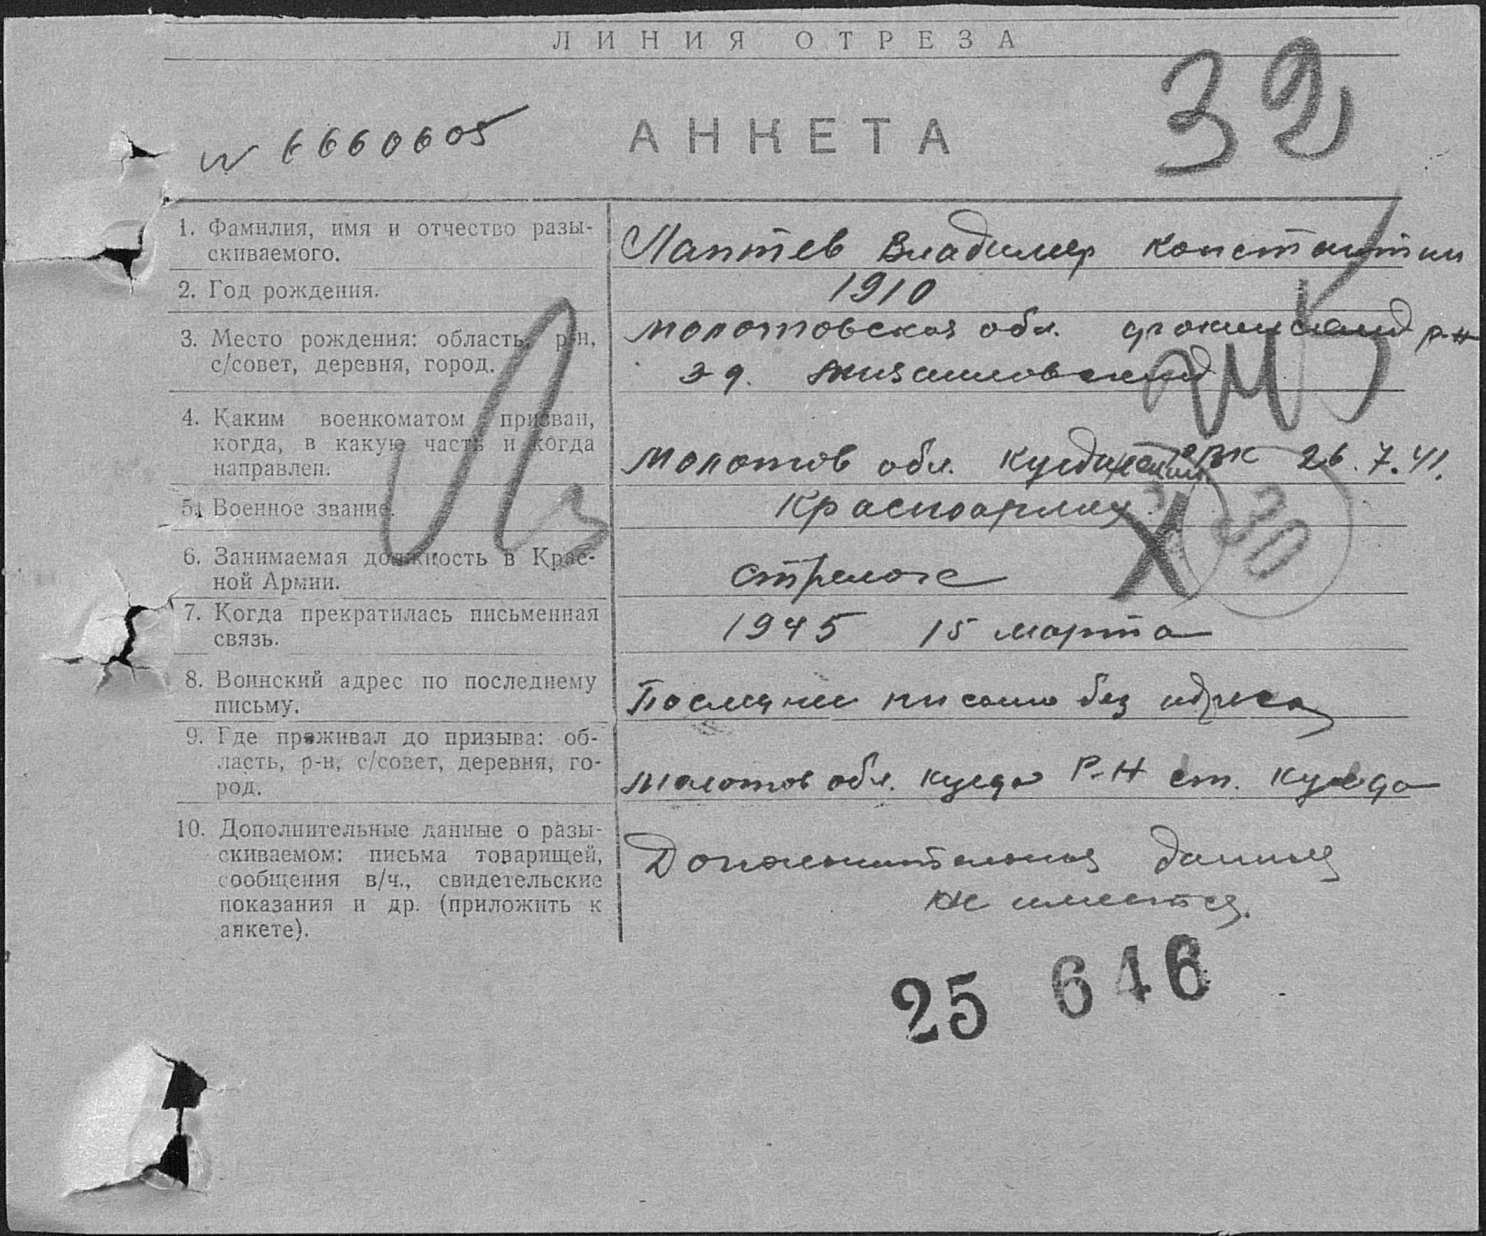 ЛИНИЯ ОТРЕЗА
32
№ 6660605
АНКЕТА
1. Фамилия, имя и отчество разы-
скиваемого.
Лаптев Владимер Константин
2. Год рождения.
1910
3. Место рождения: область, р-н,
с/совет, деревня, город.
Молотовская обл. р-н
4. Каким военкоматом призван,
когда, в какую часть и когда
направлен.
Молотов обл. Куединский РВК 26.7.41.
5. Военное звание.
Красноармеец
6. Занимаемая должность в Крас-
ной Армии.
стрелок
7. Когда прекратилась письменная
связь.
1945 15 марта
8. Воинский адрес по последнему
письму.
Последнее письмо без адреса
9. Где проживал до призыва: об-
ласть, р-н, с/совет, деревня, го-
род.
Молотов обл. Куеда Р-Н ст. Куеда
10. Дополнительные данные о разы-
скиваемом: письма товарищей,
сообщения в/ч., свидетельские
показания и др. (приложить к
анкете).
Дополнительных данных
не имеется.
Л
30
25 646